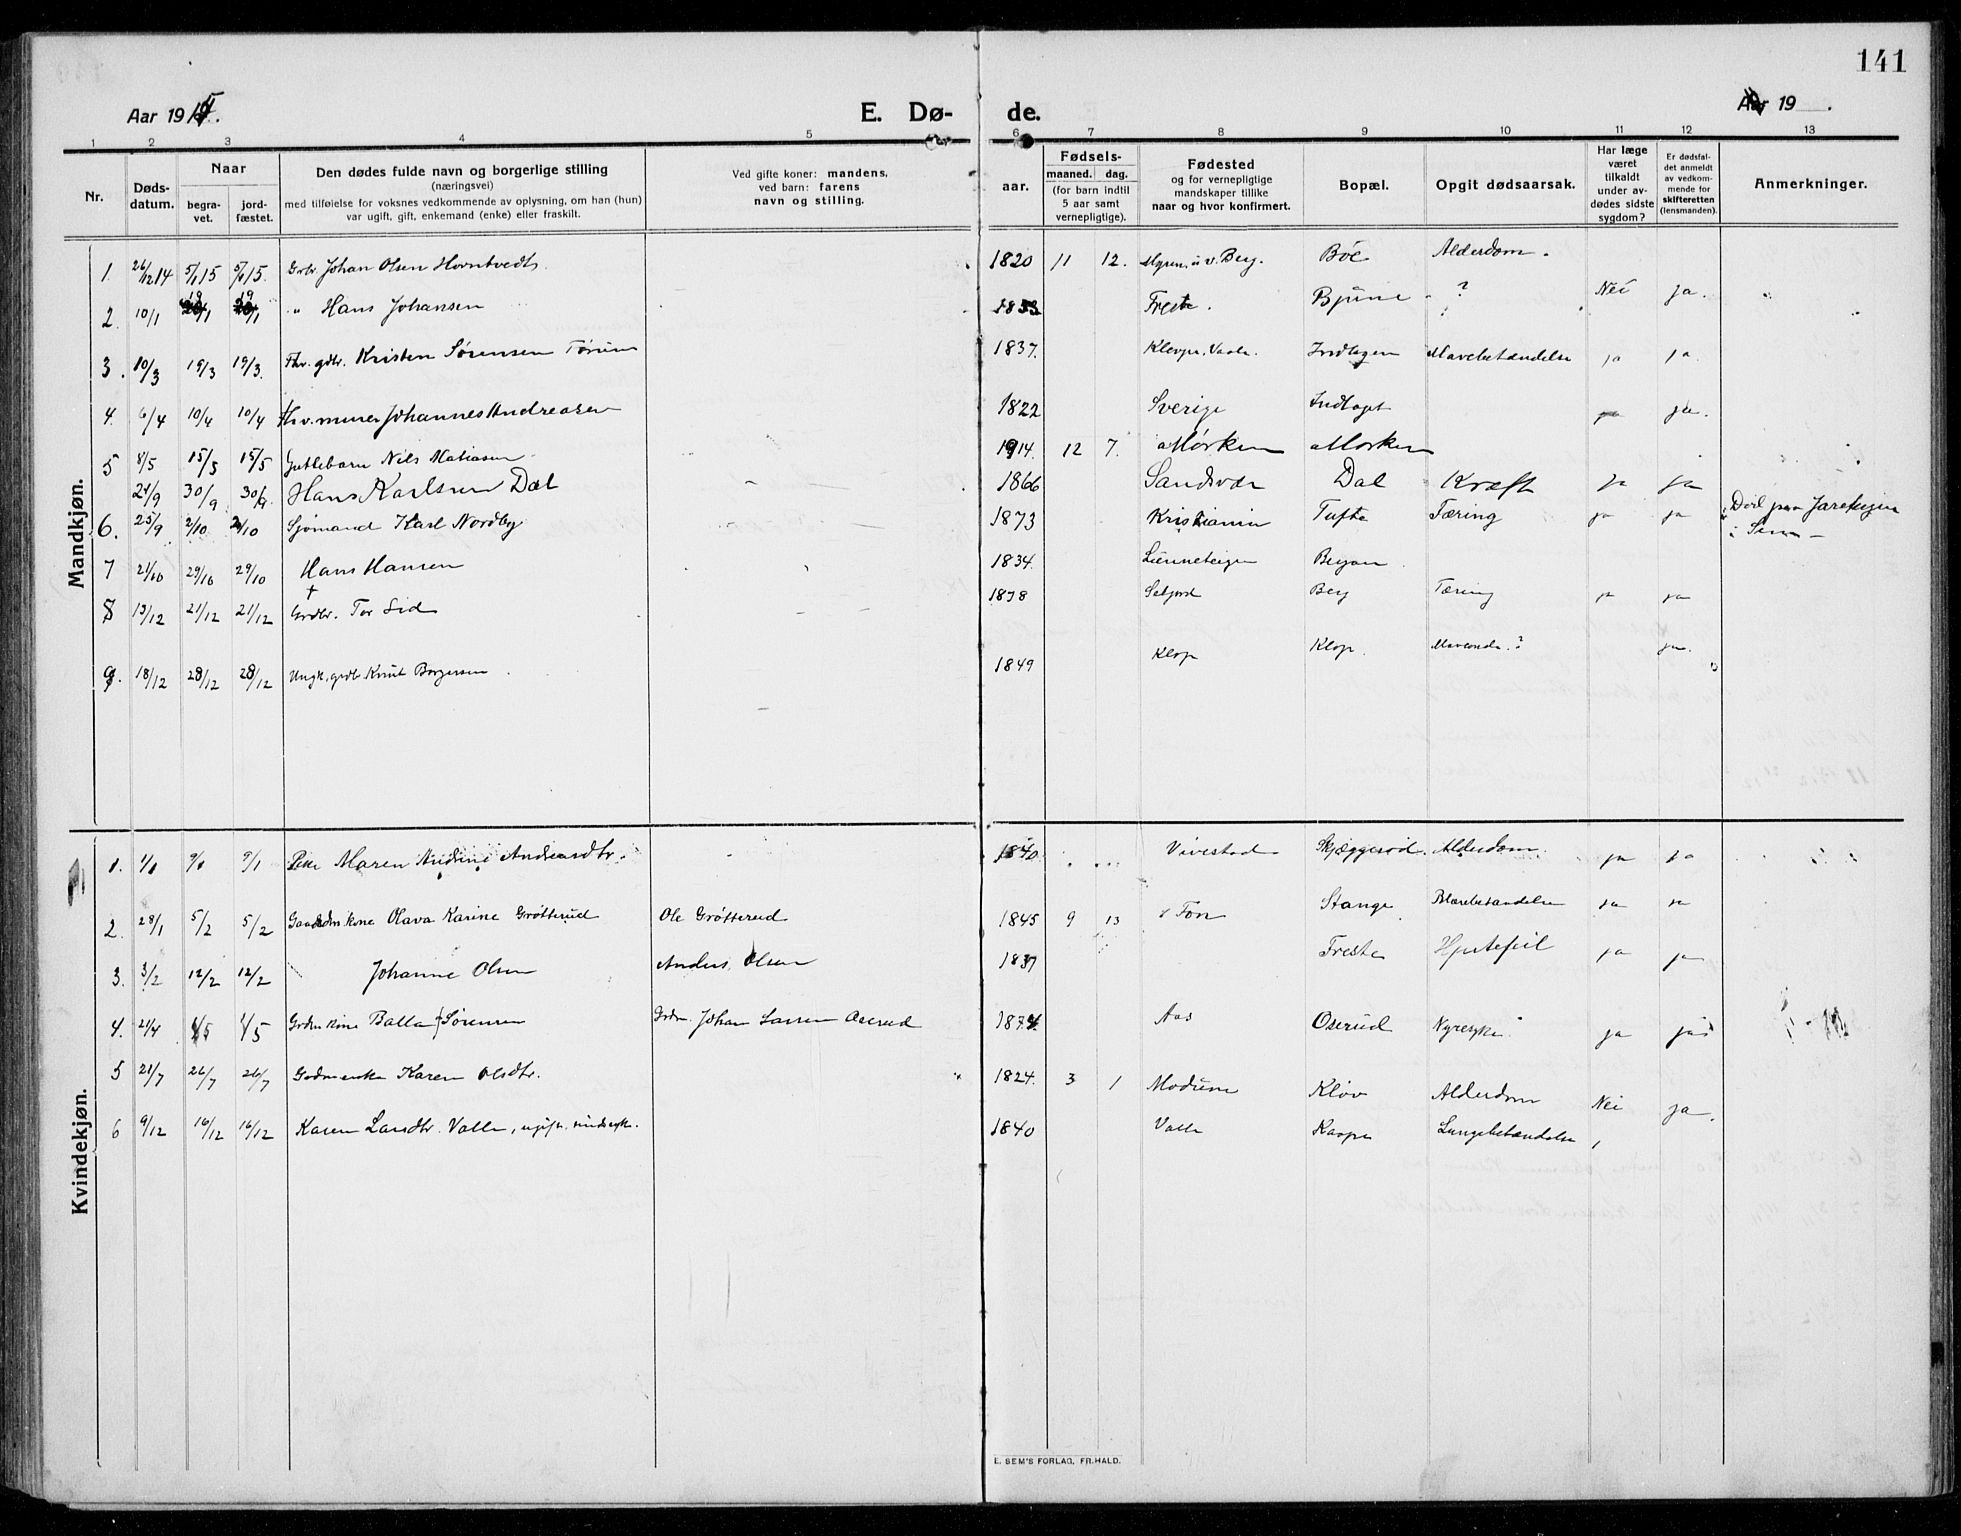 141
Aar 1915. E. Dø- de. Aar 19 .
1 2 3 4 5 6 7 8 9 10 11 12 13
Nr. Døds-datum. Naar begra-vet. jord-fæstet. Den dødes fulde navn og borgerlige stilling (næringsvei) med tilføielse for voksnes vedkommende av oplysning, om han (hun) var ugift, gift, enkemand (enke) eller fraskilt. Ved gifte koner: mandens, ved barn: farens navn og stilling. aar. Fødsels- maaned. dag. (for barn indtil 5 aar samt vernepligtige). Fødested og for vernepligtige mandskaper tillike naar og hvor konfirmert. Bopæl. Opgit dødsaarsak. Har læge været tilkaldt under av-dødes sidste sygdom? Er dødsfal-det anmeldt av vedkom-mende for skifteretten (lensmanden). Anmerkninger.
Mandkjøn.
1. 26/12 14 5/1 15 5/1 15. Grbr. Johan Olsen Horntvedt. 1820 11 12. Myren u. v. Berg. Böe Alderdom.
2. 10/1 19/1 19/1 " Hans Johansen 1833 Freste. Bjune ? Nei ja.
3. 10/3 19/3 19/3. Fhv. gdbr. Kristen Sørensen Tørum 1837. Klevpr, Vaale. Indlagen Mavebetændelse ja ja.
4. 6/4 10/4 10/4 Fhv. murer Johannes Andreasen 1822 Sverige Indlaget ja ja.
5 8/5 15/5 15/5 Guttebarn Nils Matiasen 1914. 12 7. Mørken Mørken
24/9 30/9 30/9. Hans Karlsen Dal 1866 Sandsvær Dal Kræft ja ja
6. 25/9 2/10 2/10 Sjömand Karl Nordby 1873 Kristiania Tufte Tæring ja ja Död paa i Sem
7 21/10 29/10 29/10 Hans Hansen 1834. Lunneteigen Bergan
8 13/12 21/12 21/12 Grdbr. Tor Lid 1878 Sebjørd Berg Tæring ja ja
9. 18/12 28/12 28/12 Ungk. grdbr Knut Borgersen 1849 Klop Klop. Maveonde.? ja.
Kvindekjøn.
1. 1/1 9/1 9/1 Pike Maren Andrine Andreasdtr. 1840. Vivestad Skjæggesröd. Alderdom. ja ja
2. 28/1 5/2 5/2 Gaardmkone Olava Karine Grötterud Ole Gröttrerud 1845 9 13 Fon Stange Blærebetændelse ja ja
3. 3/2 12/2 12/2 Johanne Olsen Anders Olsen 1837 Freste Hjertefeil ja ja
4. 24/4 1/5 1/5 Grdmkone Balla Sörensen Grdm. Johan Larsen Oserud 1874. Aas Oserud Nyresyke ja ja
5 21/7 26/7 26/7 Grdmenke Karen Olsdtr. 1824. 3 1 Modum Klöv Alderdom Nei ja.
6 9/12 16/12 16/12 Karen Larsdtr. Valle, ugift, sindssyk. 1840 Valle Kaapr Lungebetændelse
E. SEM'S FORLAG, FR.HALD.